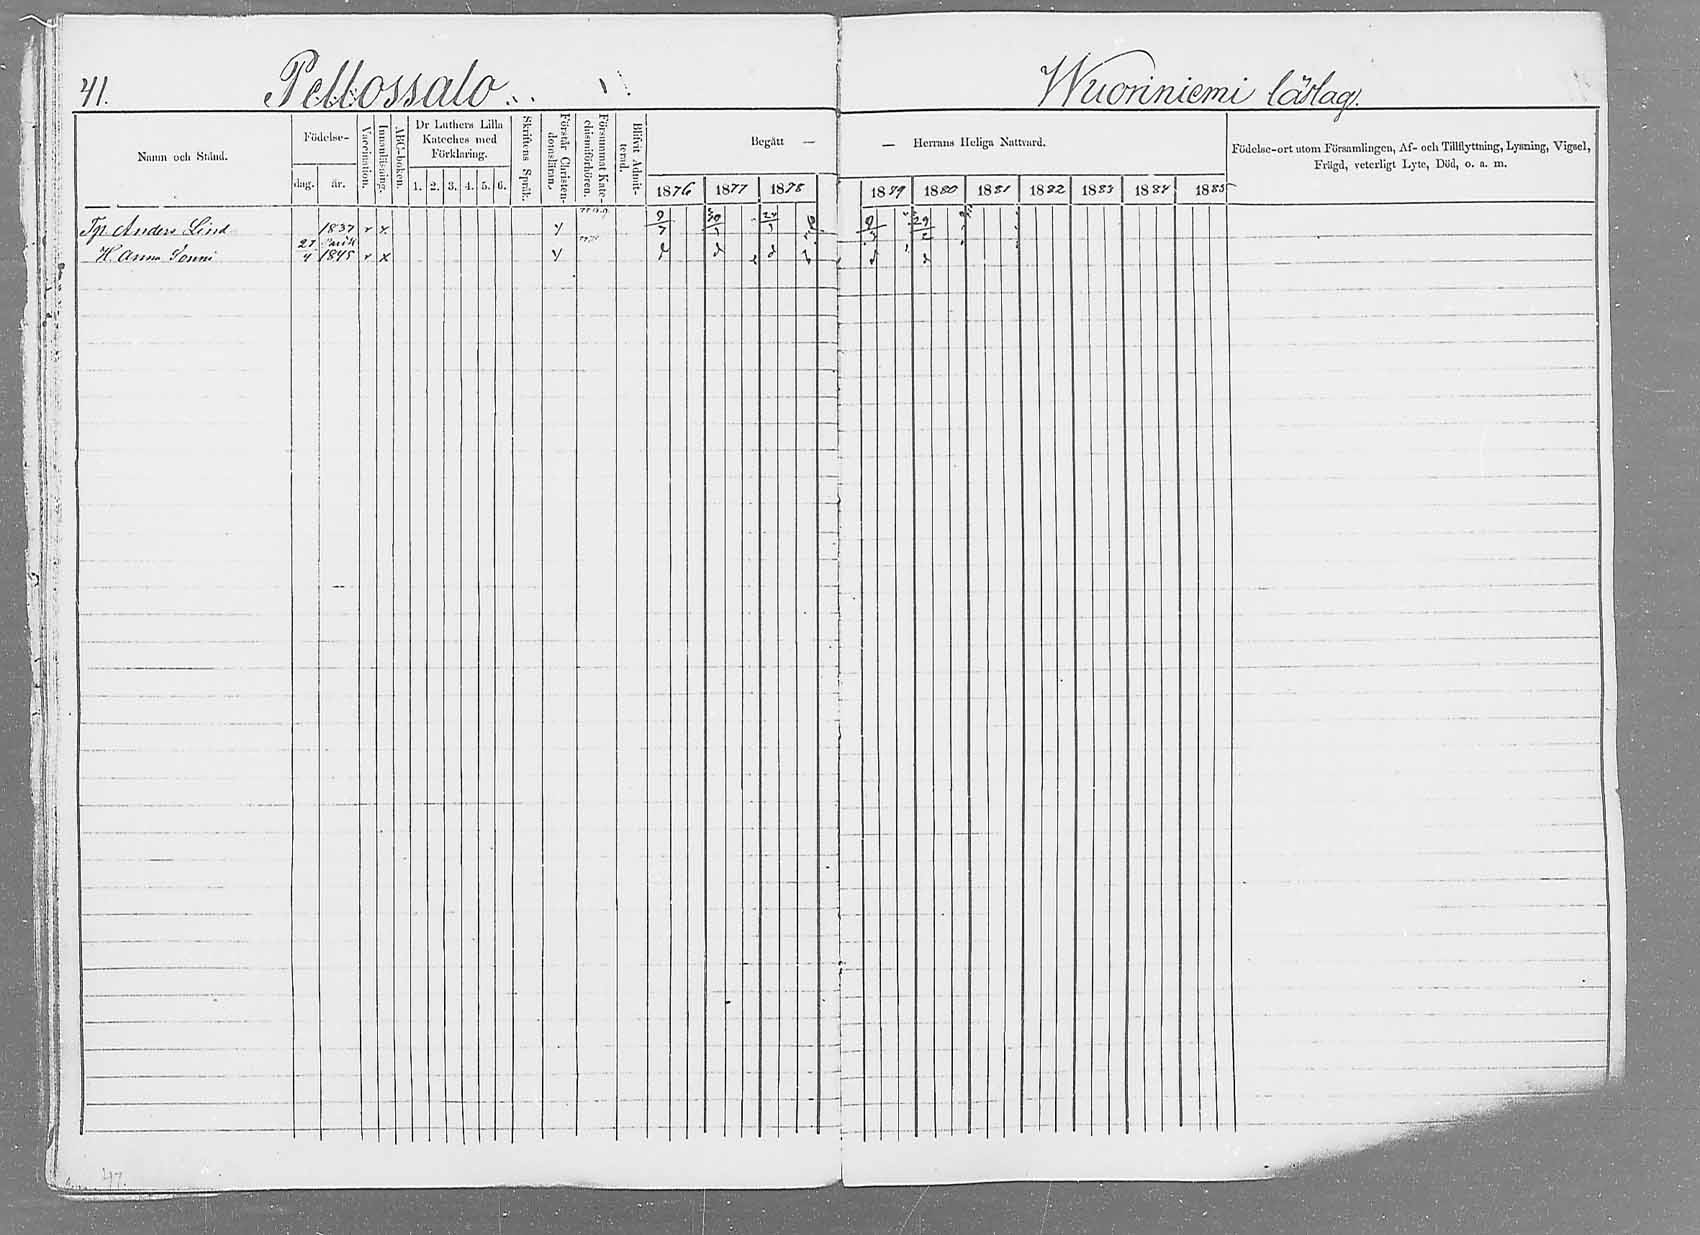 41. Pellossalo. Wuoriniemi läslag.
Namn och Stånd.
Födelse-
dag. år.
Vaccination.
Innanläsning.
ABC-boken.
Dr Luthers Lilla
Kateches med
Förklaring.
1. 2. 3. 4. 5. 6.
Skriftens Språk.
Förstår Christen-
domsläran.
Försummat Kate-
chismiförhören.
Blifvit Admit-
terad.
Begått — — Herrans Heliga Nattvard.
1876 1877 1878 1879 1880 1881 1882 1883 1884 1885
Födelse-ort utom Församlingen, Af- och Tillflyttning, Lysning, Vigsel,
Frägd, veterligt Lyte, Död, o. a. m.
Tp Anders Lind 1837
H. Anna Tonni 27/4 1845
47.